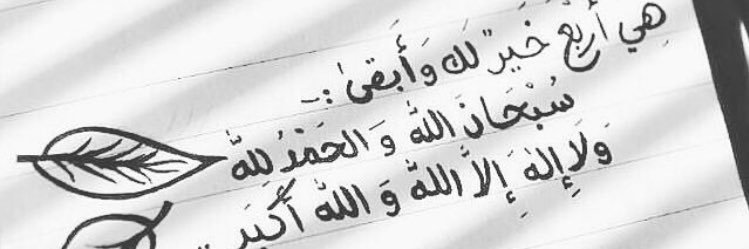 هِي أربعٌ خَيرٌ لك وَأَبقىٰ :-
سُبْحَانَ الله وَ الحَمْدُ للهَّ
وَلَا إِلٰهَ إِلاَّ اللهَّ وَ اللهَّ أَكْبَر ..